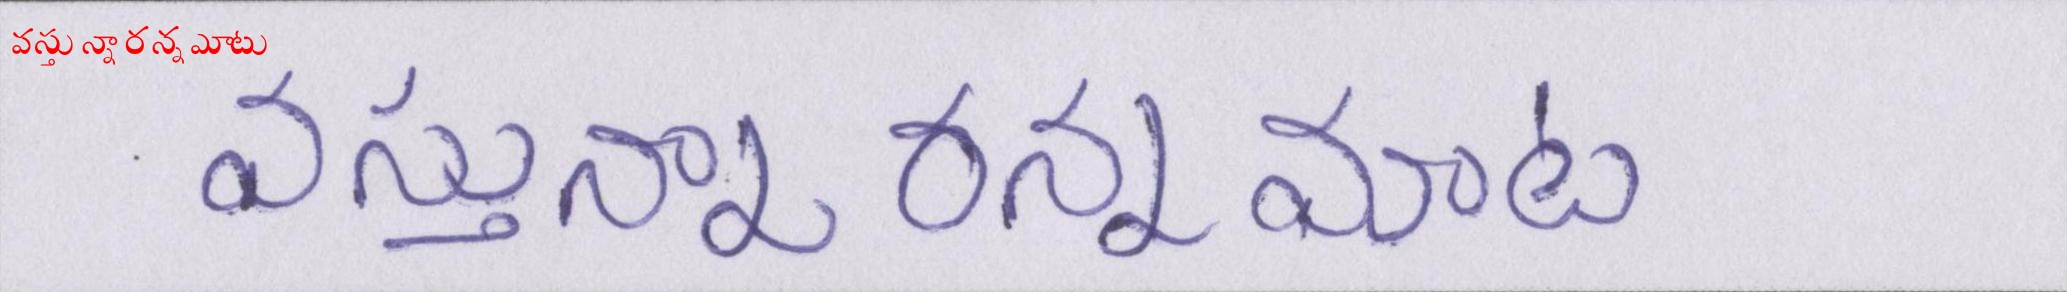 వస్తున్నారన్నమాటు
వస్తున్నారన్నమాట